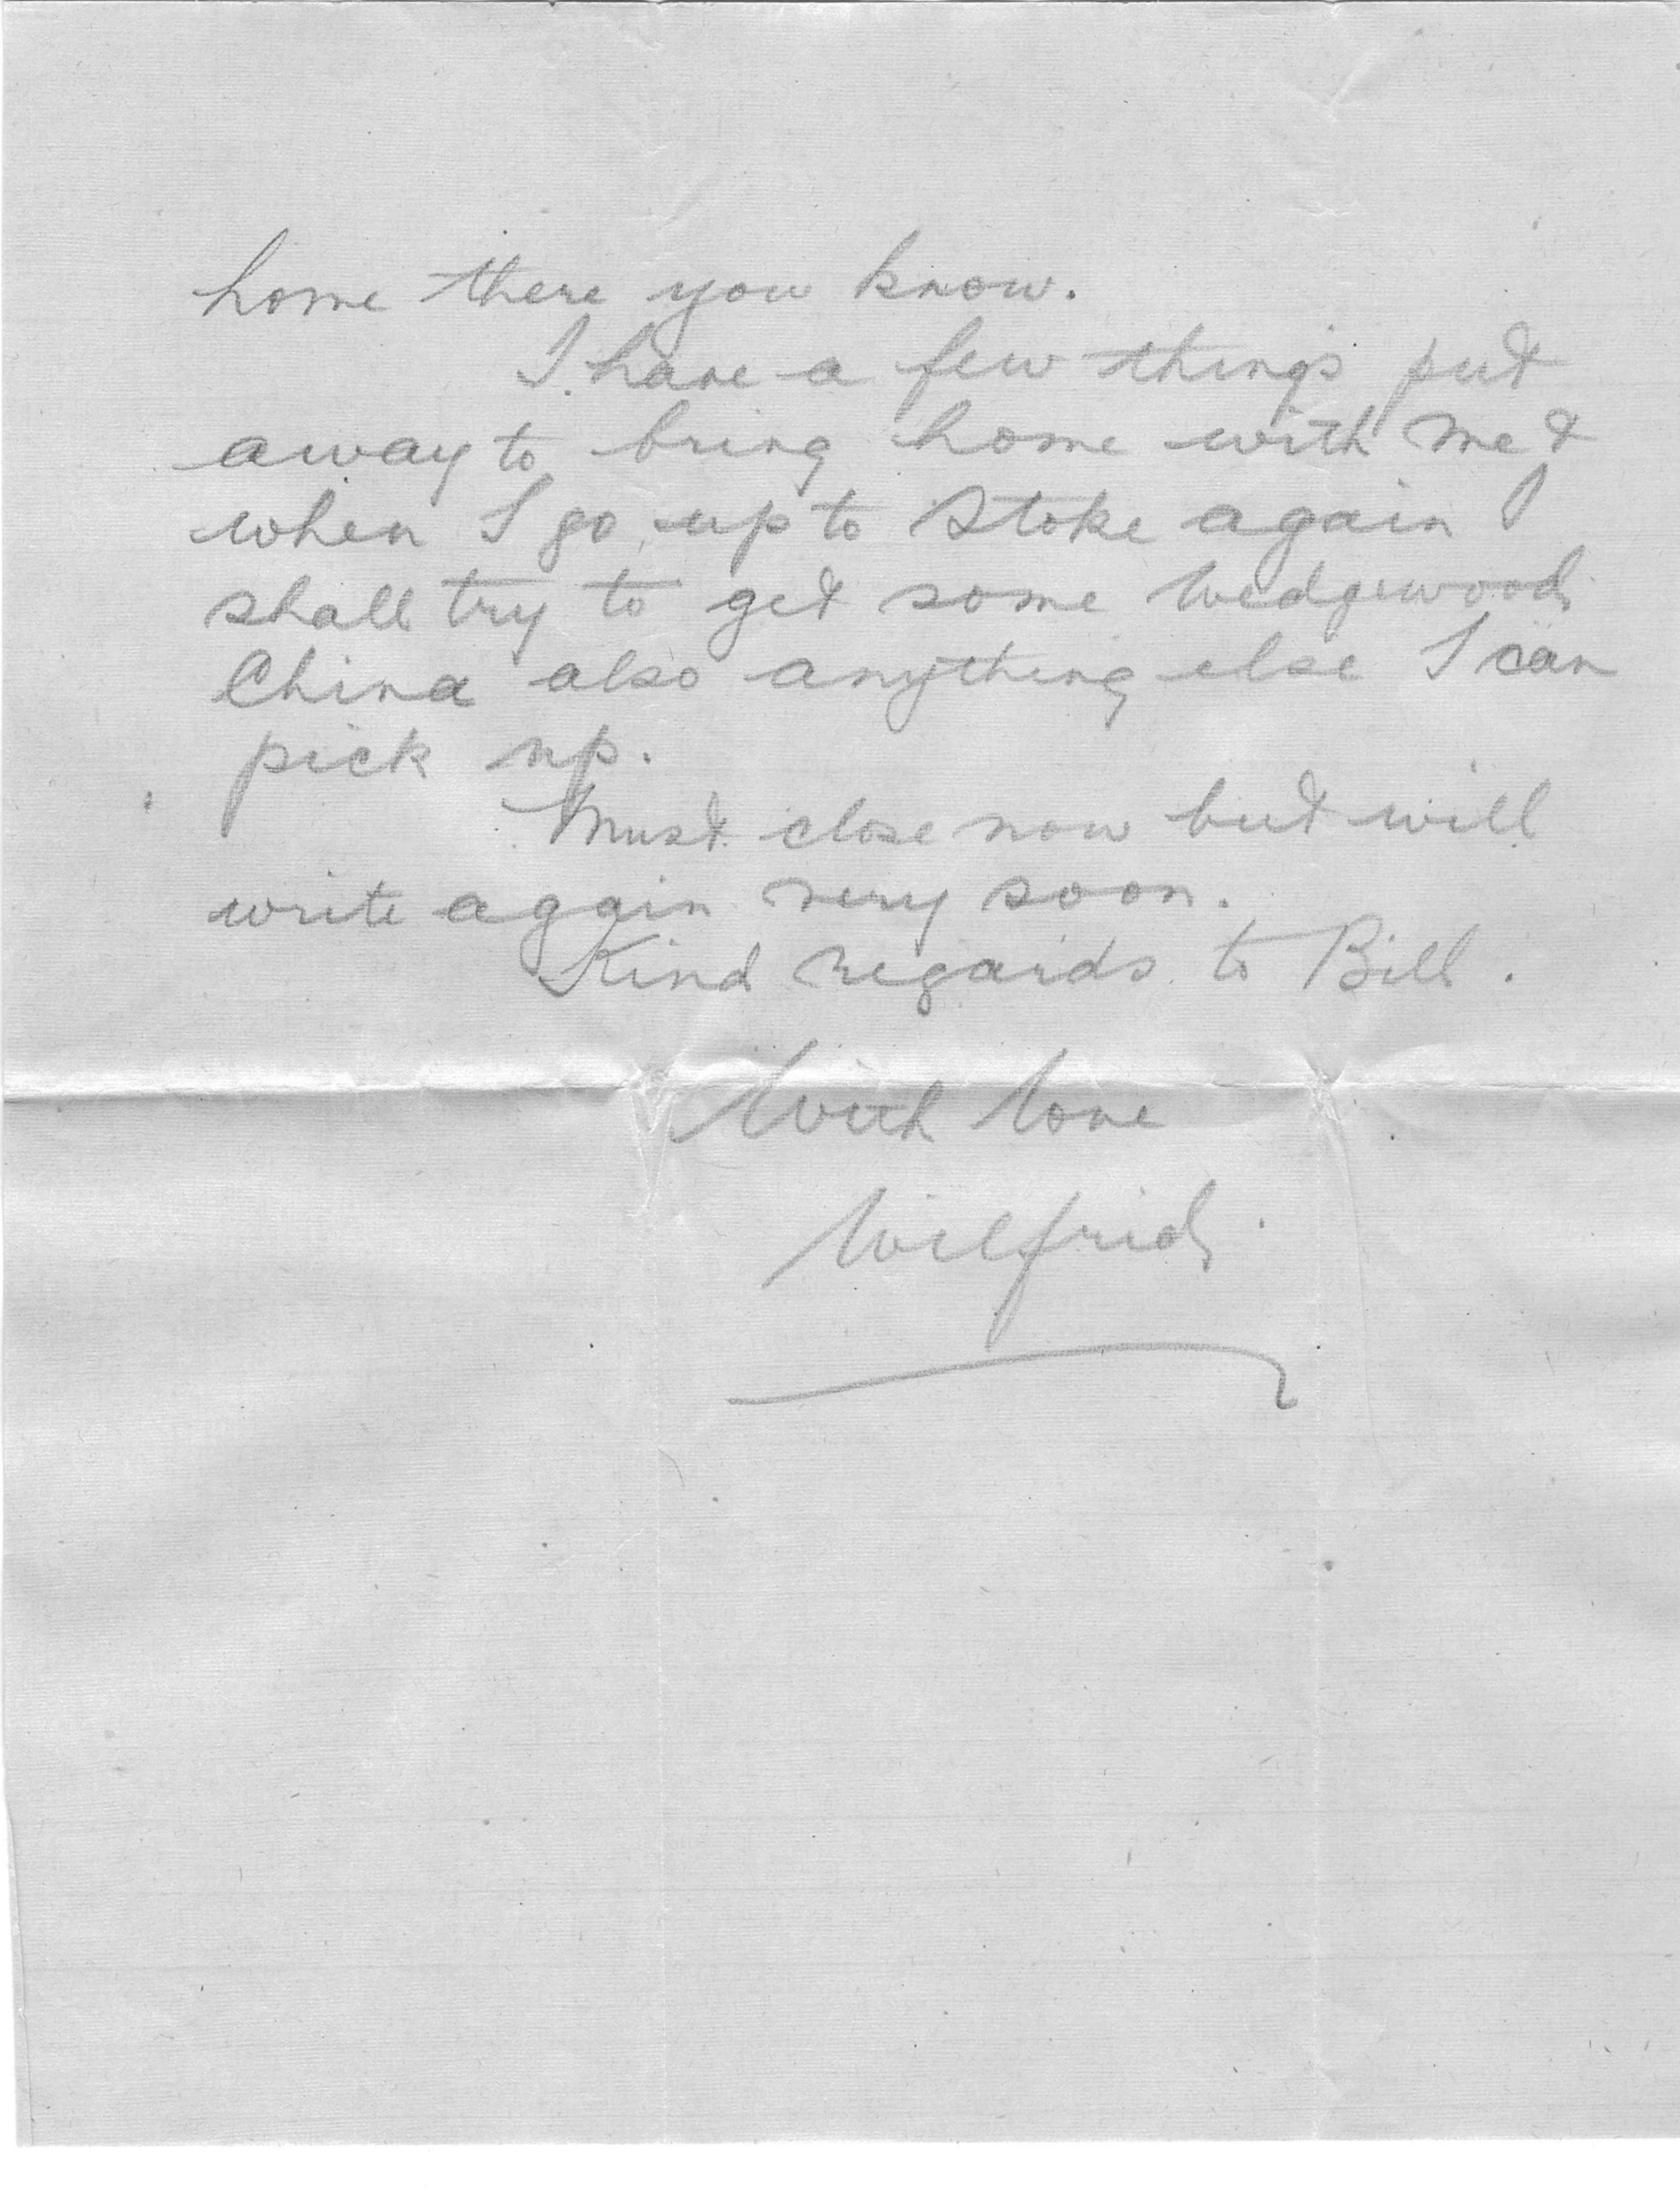 home there you know.
I have a few things put
away to bring home with me &
when I go up to Stoke again I
shall try to get some Wedgewood
China also anything else I can
pick up.
Must close now but will
write again very soon.
Kind regards to Bill.
With Love
Wilfrid.